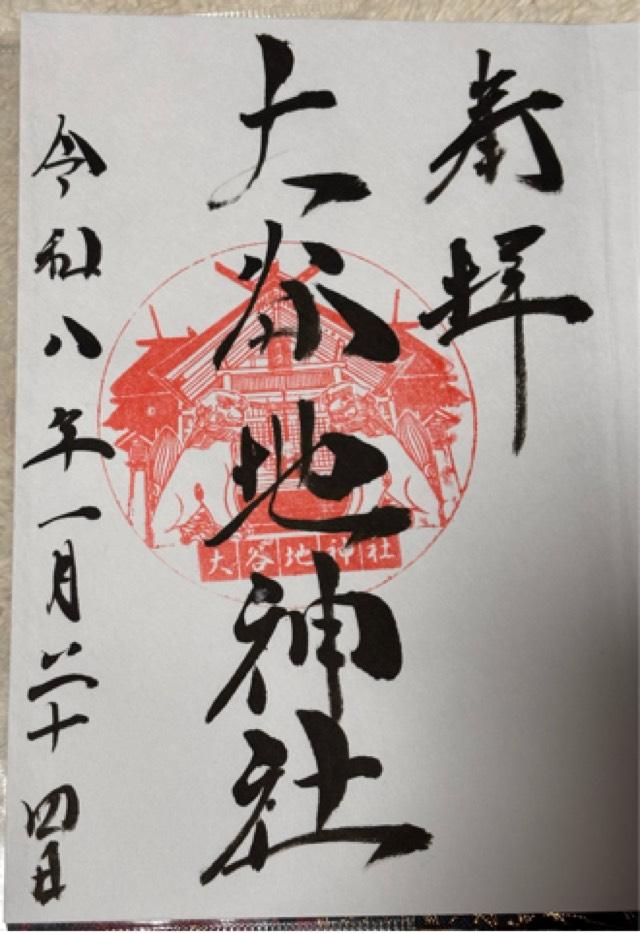 奉拝
大谷地神社
大谷地神社
令和八年一月二十四日